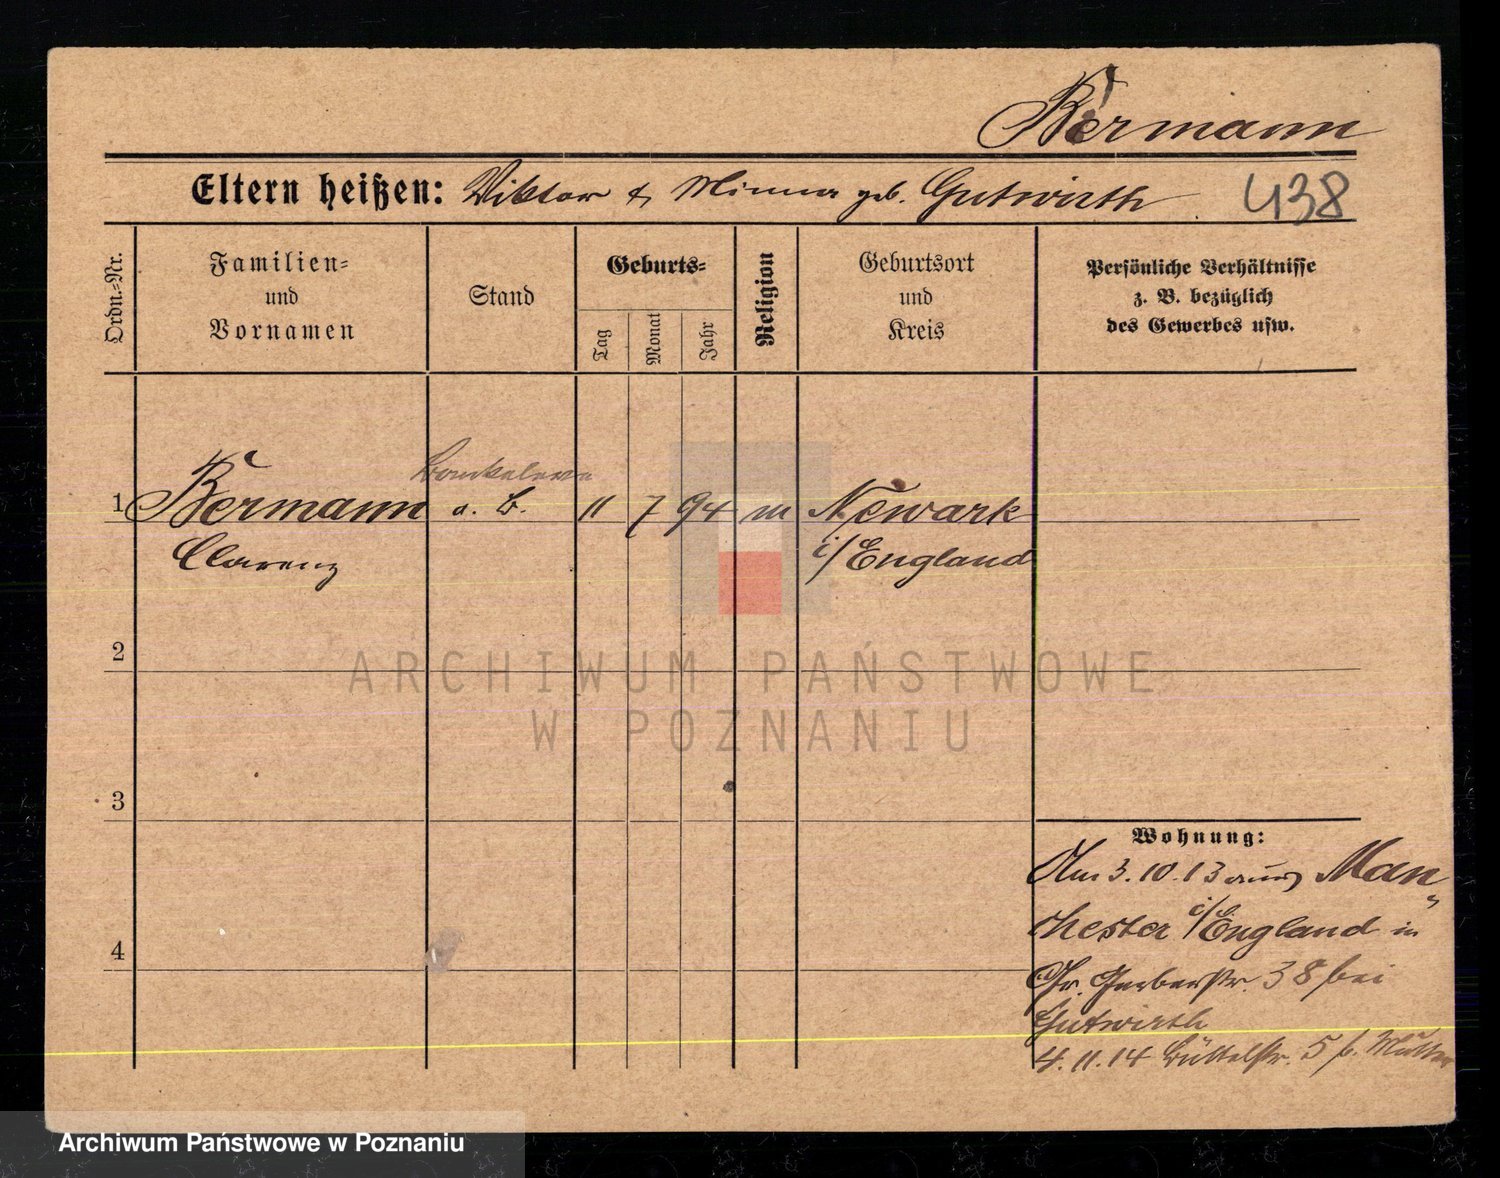 Bermann
Eltern heißen: Viktor & Minna geb. Gutwirth 438
Ordn.-Nr.
Familien-
und
Vornamen
Stand
Geburts-
Tag
Monat
Jahr
Religion
Geburtsort
und
Kreis
Persönliche Verhältnisse
z. B. bezüglich
des Gewerbes usw.
1 Bermann a. B. 11 7 94 m Newark
Clarenz i/England
2
3
4
Wohnung:
Am 3.10.13 aus Man„
chester i/England in
Gr. Gerberstr. 38 bei
Gutwirth
4.11.14 Büttelstr. 5 b. Mutter
ARCHIWUM PAŃSTWOWE
W POZNANIU
Archiwum Państwowe w Poznaniu